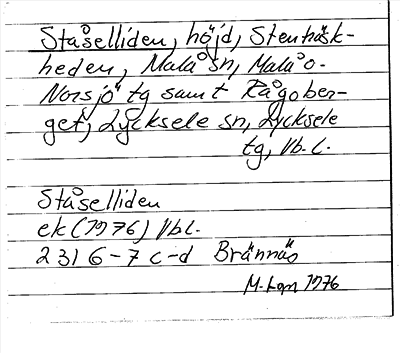 Ståselliden, höjd, Stenträsk-
heden, Malå sn, Malå o.
Norsjö tg samt Rågober-
get, Lycksele sn, Lycksele
tg, Vb. l.
Ståselliden
ek (1976) Vbl.
2316-7 c-d Brännäs
M. Lgn 1976